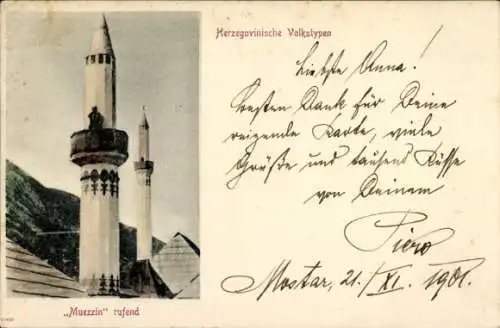 Herzegovinische Volkstypen
Liebste Anna!
Besten Dank für Deine
reizende Karte, viele
Grüße und tausend Küsse
von Deinem
Piero
Mostar, 21./XI. 1901.
„Muezzin" rufend